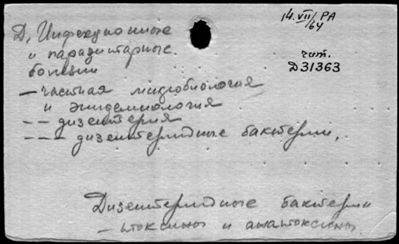 Д, Инфекционные
и паразитарные
болезни
– частная микробиология
и эпидемиология
– – дизентерия
– – – дизентерийные бактерии,
14.VII/64 РА
чит.
Д31363
Дизентерийные бактерии
– токсины и анатоксины